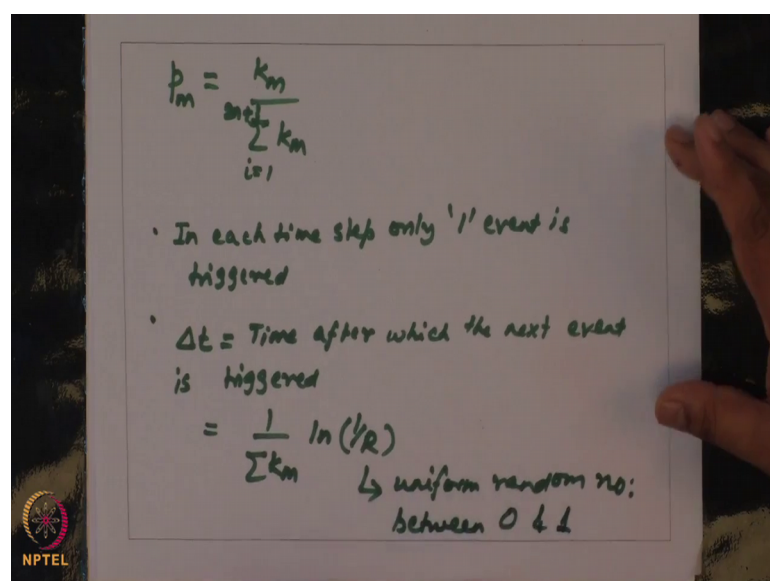 p_m = k_m
∑ k_m
i=1
· In each time step only '1' event is
triggered
· Δt = Time after which the next event
is triggered
= 1 ln (1/R)
∑ k_m ↳ uniform random no:
between 0 & 1
NPTEL